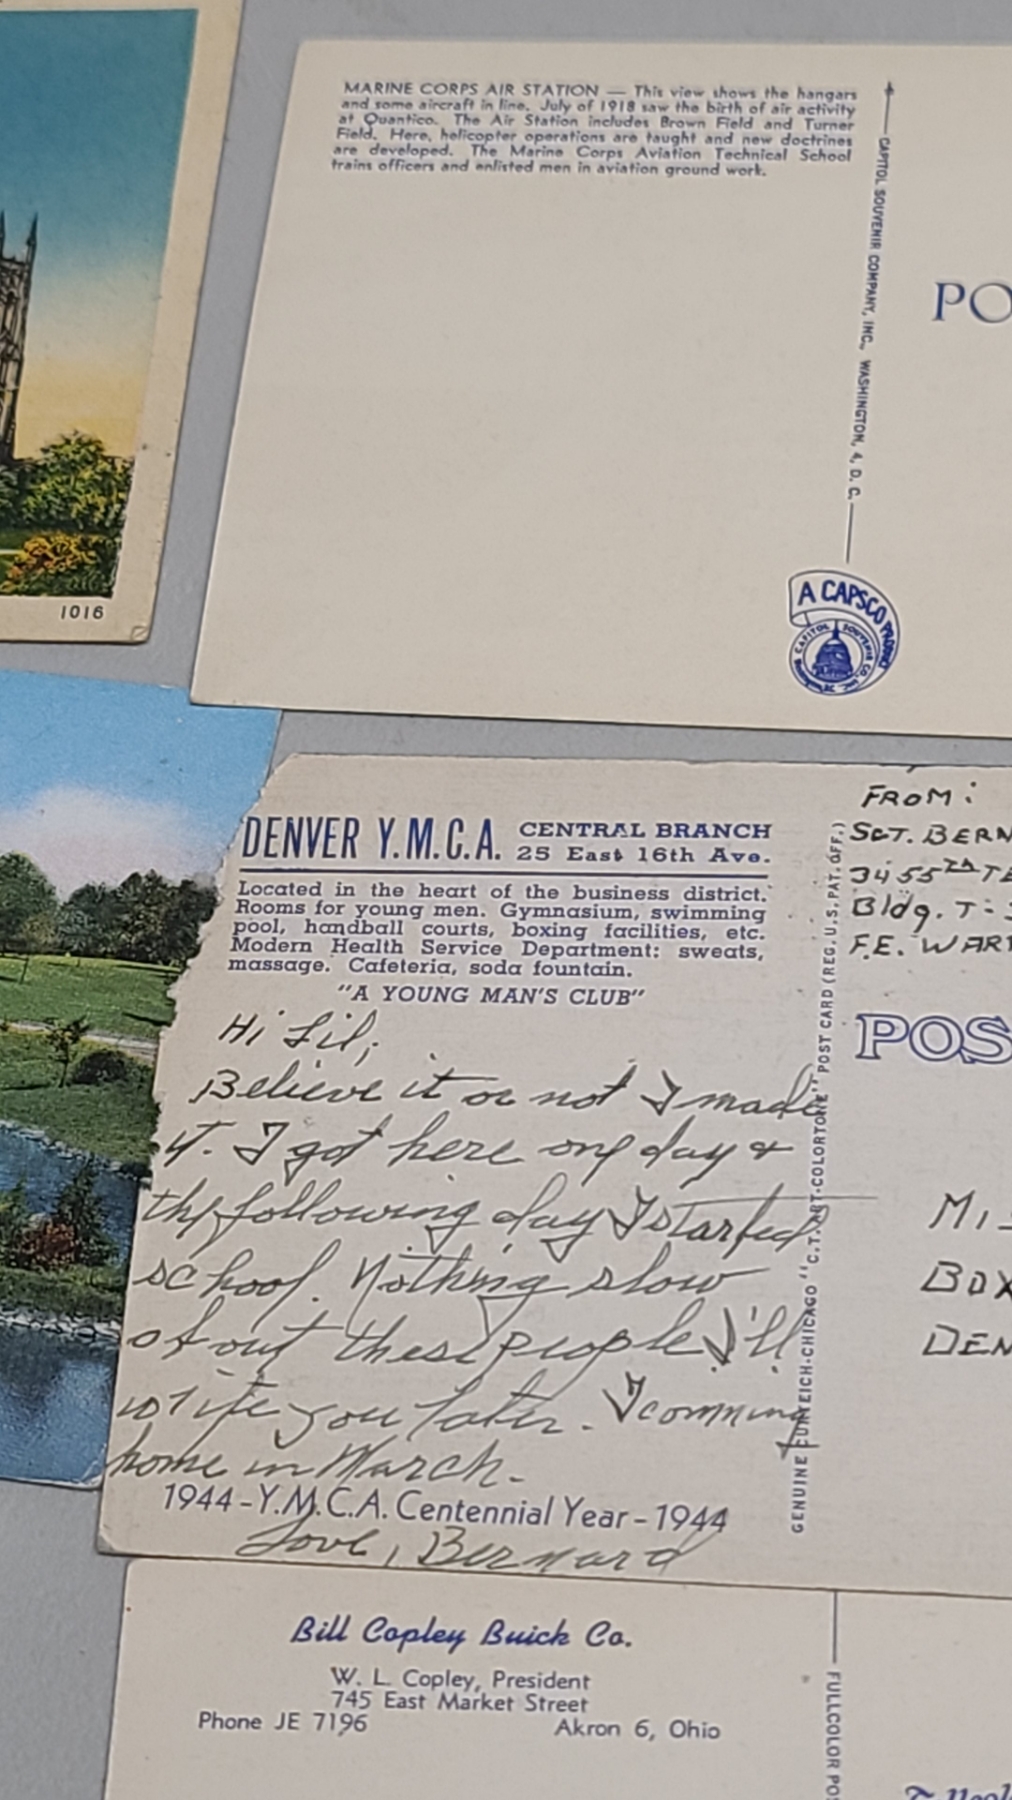 1016
MARINE CORPS AIR STATION — This view shows the hangars
and some aircraft in line. July of 1918 saw the birth of air activity
at Quantico. The Air Station includes Brown Field and Turner
Field. Here, helicopter operations are taught and new doctrines
are developed. The Marine Corps Aviation Technical School
trains officers and enlisted men in aviation ground work.
CAPITOL SOUVENIR COMPANY, INC., WASHINGTON, 4, D. C.
PO
A CAPSCO PRODUCT
CAPITOL SOUVENIR CO., INC.
DENVER Y.M.C.A. CENTRAL BRANCH
25 East 16th Ave.
Located in the heart of the business district.
Rooms for young men. Gymnasium, swimming
pool, handball courts, boxing facilities, etc.
Modern Health Service Department: sweats,
massage. Cafeteria, soda fountain.
"A YOUNG MAN'S CLUB"
Hi Lil,
Believe it or not I made
it. I got here one day &
the following day I started
school. Nothing slow
about these people. I'll
write you later. I comming
home in March.
1944-Y.M.C.A. Centennial Year-1944
Love, Bernard
GENUINE CURTEICH-CHICAGO "C.T. ART-COLORTONE" POST CARD (REG. U.S. PAT. OFF.)
FROM:
SGT. BERN
3455TH TE
Bldg. T-
F.E. WAR
POS
MIS
BOX
DEN
Bill Copley Buick Co.
W. L. Copley, President
745 East Market Street
Phone JE 7196 Akron 6, Ohio
FULLCOLOR POS